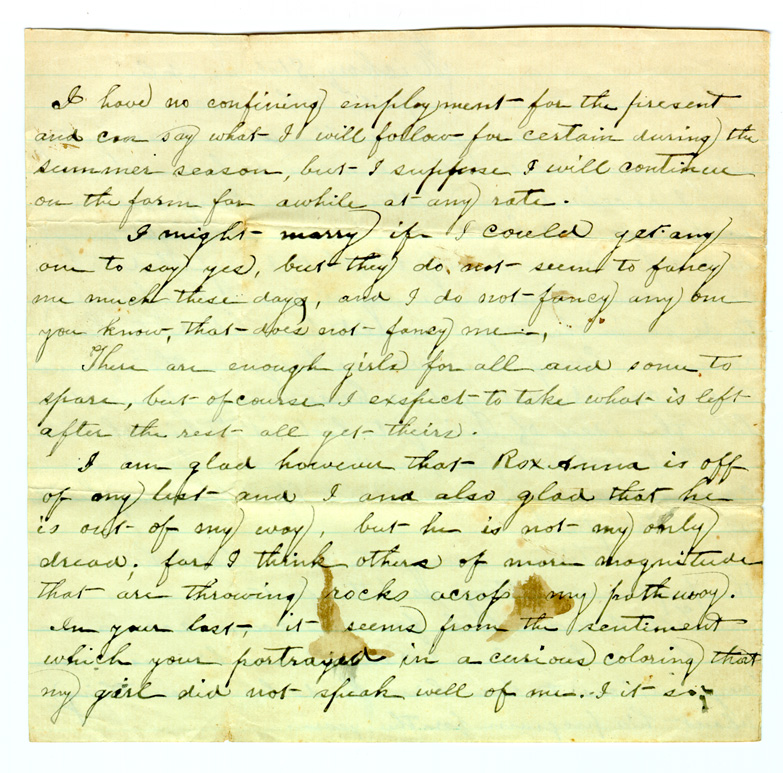 I have no confining employment for the present
and can say what I will follow for certain during the
summer season, but I suppose I will continue
on the farm for awhile at any rate.
I might marry if I could get any
one to say yes, but they do not seem to fancy
me much these days, and I do not fancy any one
you know, that does not fancy me.
There are enough girls for all and some to
spare, but of course I exspect to take what is left
after the rest all get theirs.
I am glad however that RoxAnna is off
of my list and I and also glad that he
is out of my way, but he is not my only
dread; for I think others of more magnitude
that are throwing rocks across my pathway.
In your last, it seems from the sentiment
which your portrayed in a curious coloring that
my girl did not speak well of me. I it so;